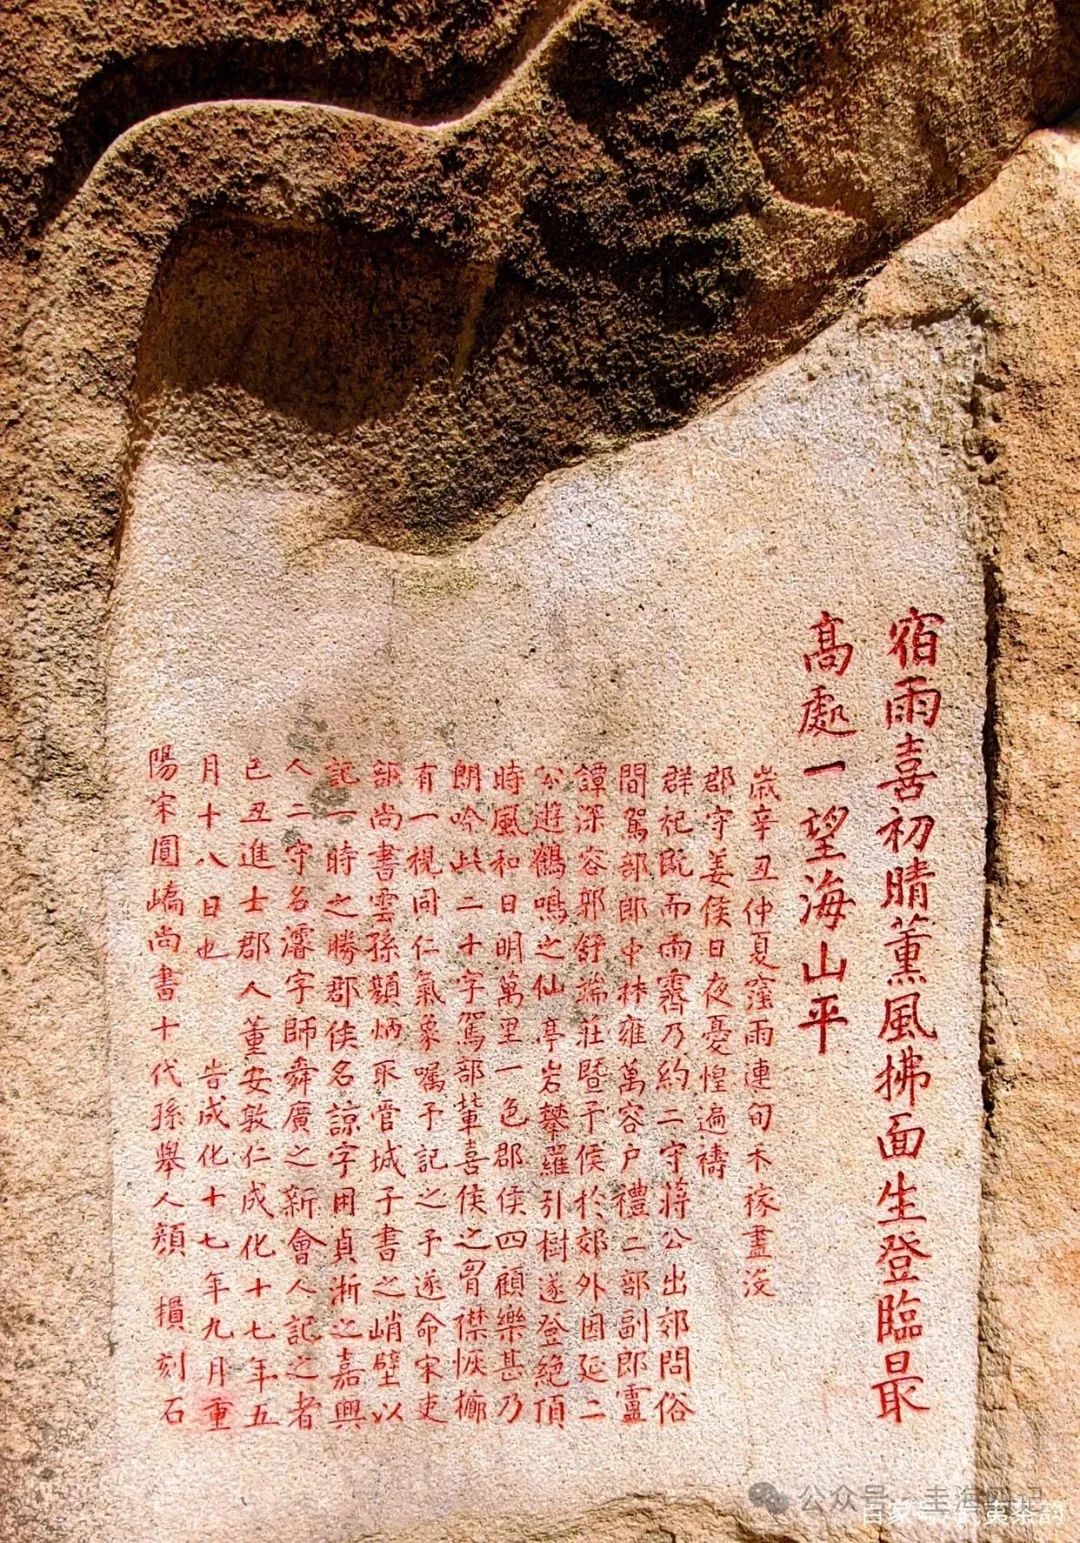 宿雨喜初晴薰風拂面生登臨最
高處一望海山平
歲辛丑仲夏霪雨連旬禾稼盡沒
郡守姜侯日夜憂惶遍禱
群祀既而雨霽乃約二守蔣公出郊問俗
間駕部郎中林雍萬容戶禮二部副郎靈
譚深容郭舒端莊暨予侯於郊外因延二
公遊鶴鳴之仙亭岩攀蘿引樹遂登絕頂
時風和日明萬里一色郡侯四顧樂甚乃
朗吟此二十字駕部輩喜侯之胷襟恢廓
有一視同仁氣象囑予記之予遂命宋吏
部尚書雲孫顏炳取管城子書之峭壁以
記一時之勝郡侯名諒字用貞浙之嘉興
人二守名濬字師舜廣之新會人記之者
己丑進士郡人董安敦仁成化十七年五
月十八日也 告成化十七年九月重
陽宋圓嶠尚書十代孫舉人顏 損刻石
公众号
百家号